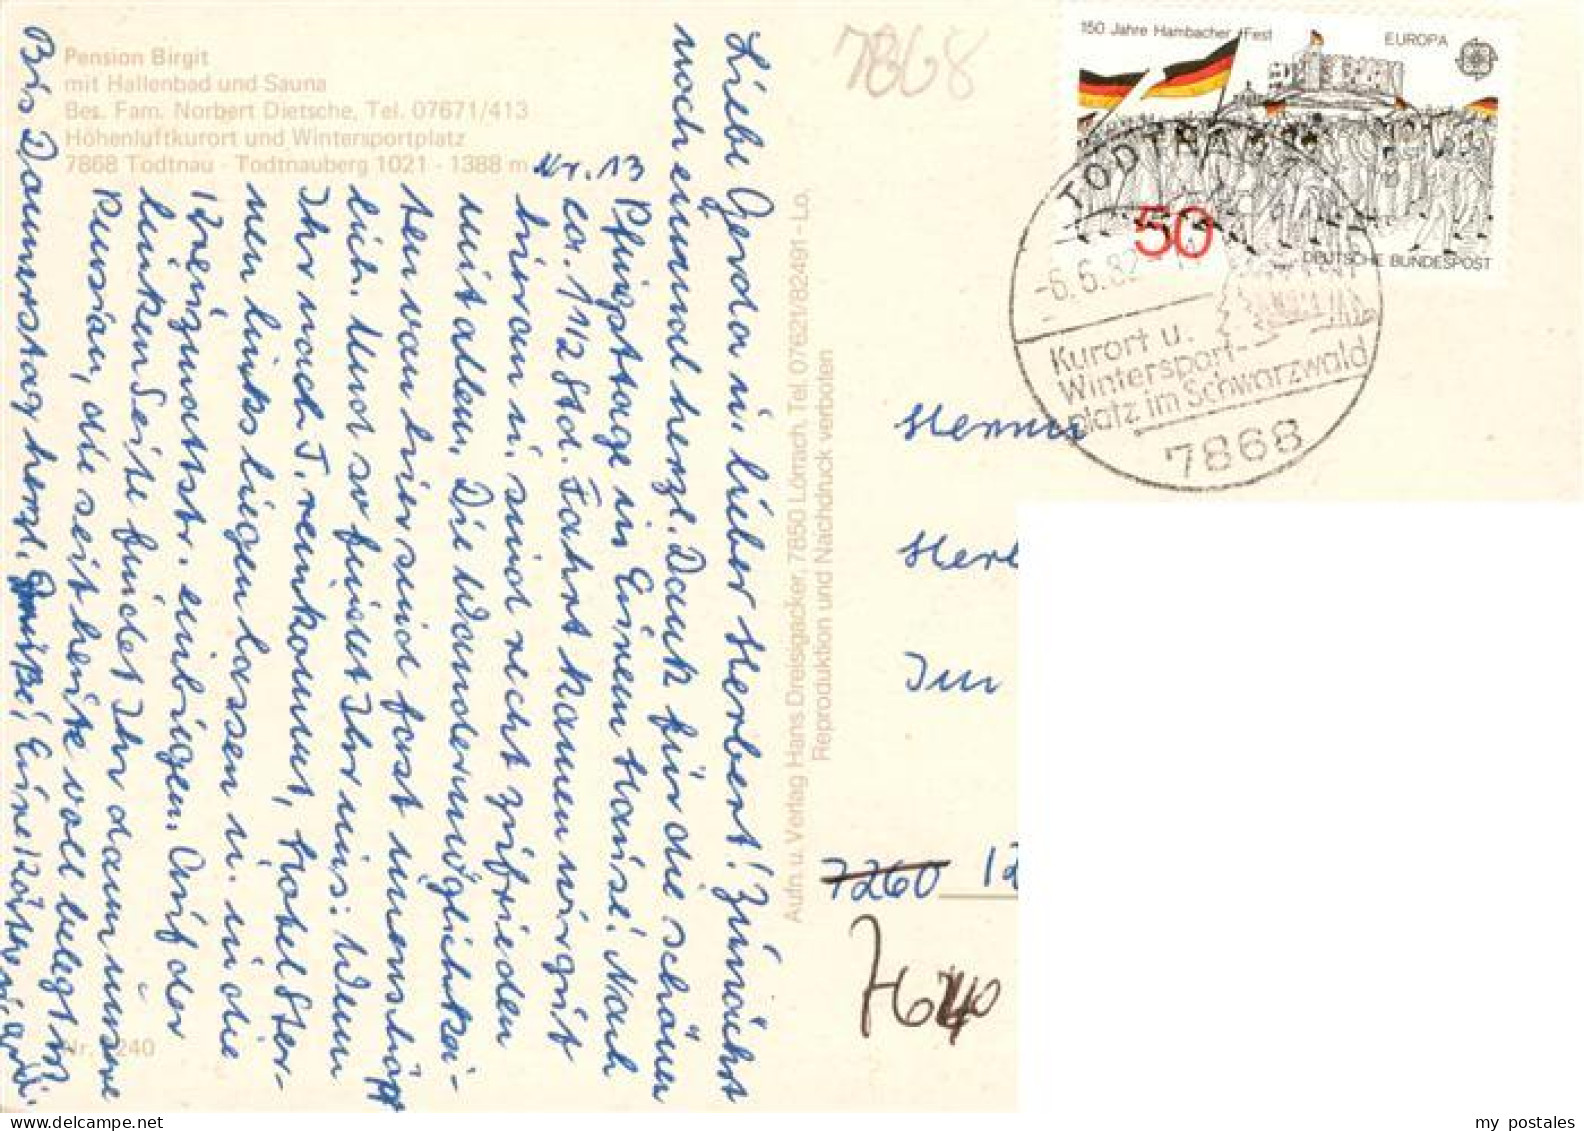 Pension Birgit
mit Hallenbad und Sauna
Bes. Fam. Norbert Dietsche, Tel. 07671/413
Höhenluftkurort und Wintersportplatz
7868 Todtnau - Todtnauberg 1021 - 1388 m
Nr. 13
Liebe Gerda u. lieber Herbert! Zunächst
noch einmal herzl. Dank für die schönen
Pfingsttage in Eurem Hause! Nach
ca. 1 1/2 Std. Fahrt kamen wir gut
hier an u. sind recht zufrieden
mit allem. Die Wandermöglichkei-
ten von hier sind fast unerschöpf
lich. Und so findet Ihr uns: Wenn
Ihr nach T. reinkommt, Hotel Ster-
nen links liegen lassen u. in die
Kreuzmattstr. einbiegen. Auf der
linken Seite findet Ihr dann unsere
Pension, die seit heute voll belegt ist.
Bis Donnerstag herzl. Grüße, Eure
Nr. 240
Aufn. u. Verlag Hans Dreisigacker, 7850 Lörrach, Tel. 07621/82491 - Lo,
Reproduktion und Nachdruck verboten
7868
150 Jahre Hambacher Fest
EUROPA
50
DEUTSCHE BUNDESPOST
TODTNAU
-6.6.82
Kurort u.
Wintersport-
platz im Schwarzwald
7868
Herrn
Her
Im
7260
my postales